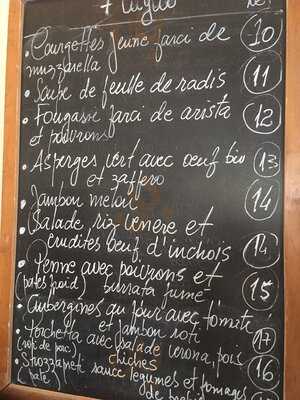 7 luglio
• Courgettes jeune farci de 10
muzzarella
• Soupe de feulle de radis 11
• Fougasse farci de arista 12
et pouvrons
• Asperges vert avec oeuf bio 13
et zaffero
• Jambon melon 14
• Salade riz venere et
crudites oeuf d'inchois 14
• Penne avec pouvrons et
(pates froid) burrata fumé 15
• Aubergines au four avec tomate
et jambon roti 17
• Porchetta avec salade verona, pois
(roti de pac) chiches 16
• Strozzapreti sauce legumes et fromages
pate)